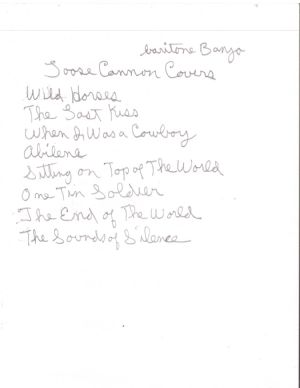 baritone Banjo
Loose Cannon Covers
Wild Horses
The Last Kiss
When I Was a Cowboy
Abilene
Sitting on Top of The World
One Tin Soldier
The End of The World
The Sounds of Silence